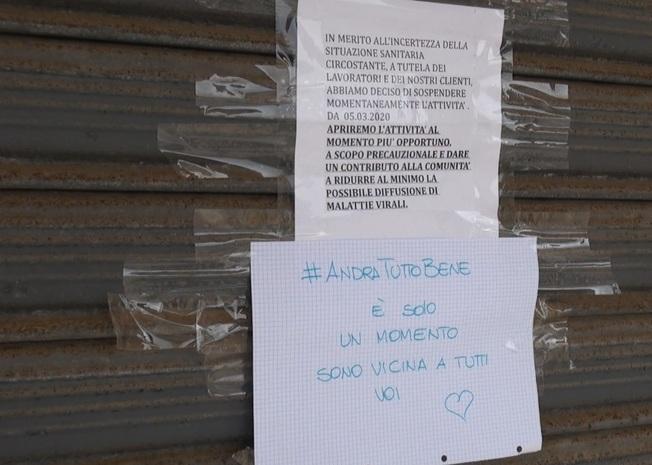 IN MERITO ALL'INCERTEZZA DELLA
SITUAZIONE SANITARIA
CIRCOSTANTE, A TUTELA DEI
LAVORATORI E DEI NOSTRI CLIENTI,
ABBIAMO DECISO DI SOSPENDERE
MOMENTANEAMENTE L'ATTIVITA'.
DA 05.03.2020
APRIREMO L'ATTIVITA' AL
MOMENTO PIU' OPPORTUNO,
A SCOPO PRECAUZIONALE E DARE
UN CONTRIBUTO ALLA COMUNITA'
A RIDURRE AL MINIMO LA
POSSIBILE DIFFUSIONE DI
MALATTIE VIRALI.
#ANDRATUTTOBENE
È SOLO
UN MOMENTO
SONO VICINA A TUTTI
VOI